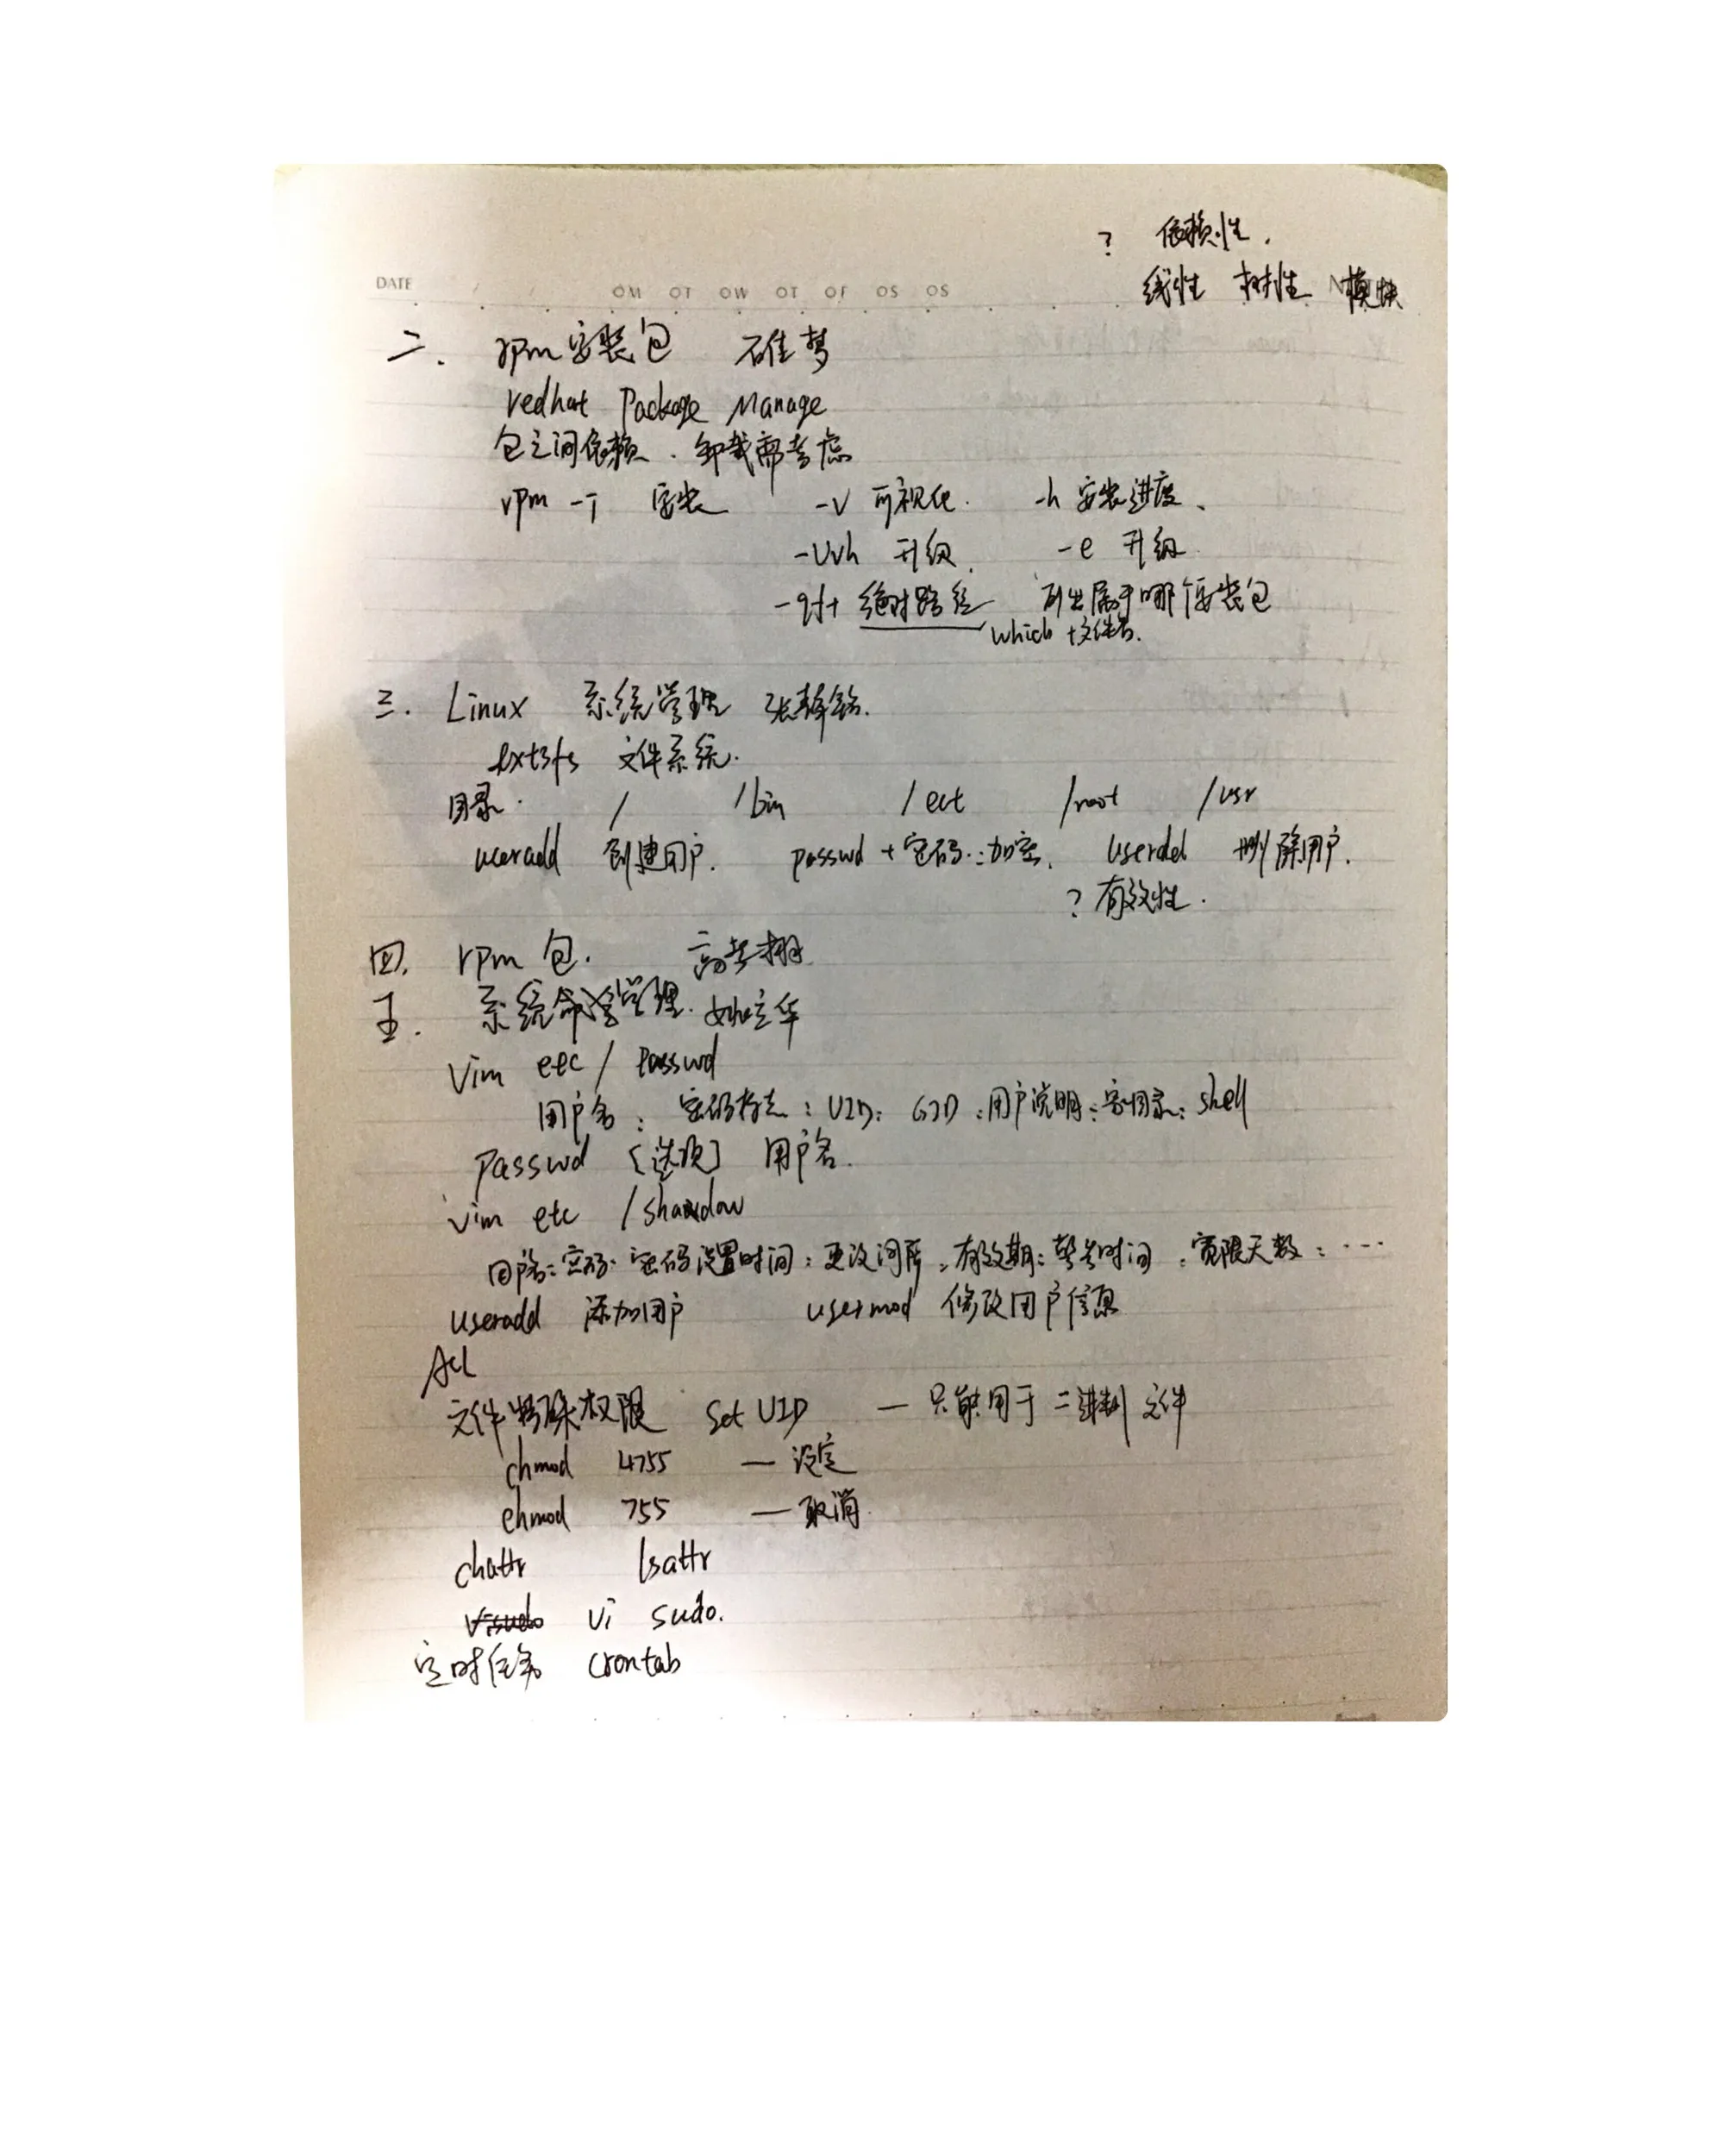 ? 依赖性.
线性 树性 模块
DATE / / OM OT OW OT OF OS OS
二. rpm安装包 梦
redhat Package Manage
包之间依赖. 卸载需考虑
rpm -i 安装 -v 可视化. -h 安装进度、
-Uvh 升级. -e 升级
-qf+ 绝对路径 列出属于哪个安装包
which +文件名.
三. Linux 系统管理 张
ext3fs 文件系统.
目录. / /bin /ect /root /usr
useradd 创建用户. passwd + 密码::加密. userdel 删除用户.
? 有效性.
四. rpm 包. 高
五. 系统命令管理. 华
vim etc / passwd
用户名: 密码标志: UID: GID :用户说明:家目录: shell
passwd [选项] 用户名.
vim etc /shadow
用户名:密码: 密码设置时间: 更改间隔:有效期:警告时间:宽限天数: ···
useradd 添加用户 usermod 修改用户信息
ACL
文件特殊权限 Set UID — 只能用于二进制文件
chmod 4755 — 设定
chmod 755 — 取消.
chattr lsattr
visudo vi sudo.
定时任务 crontab